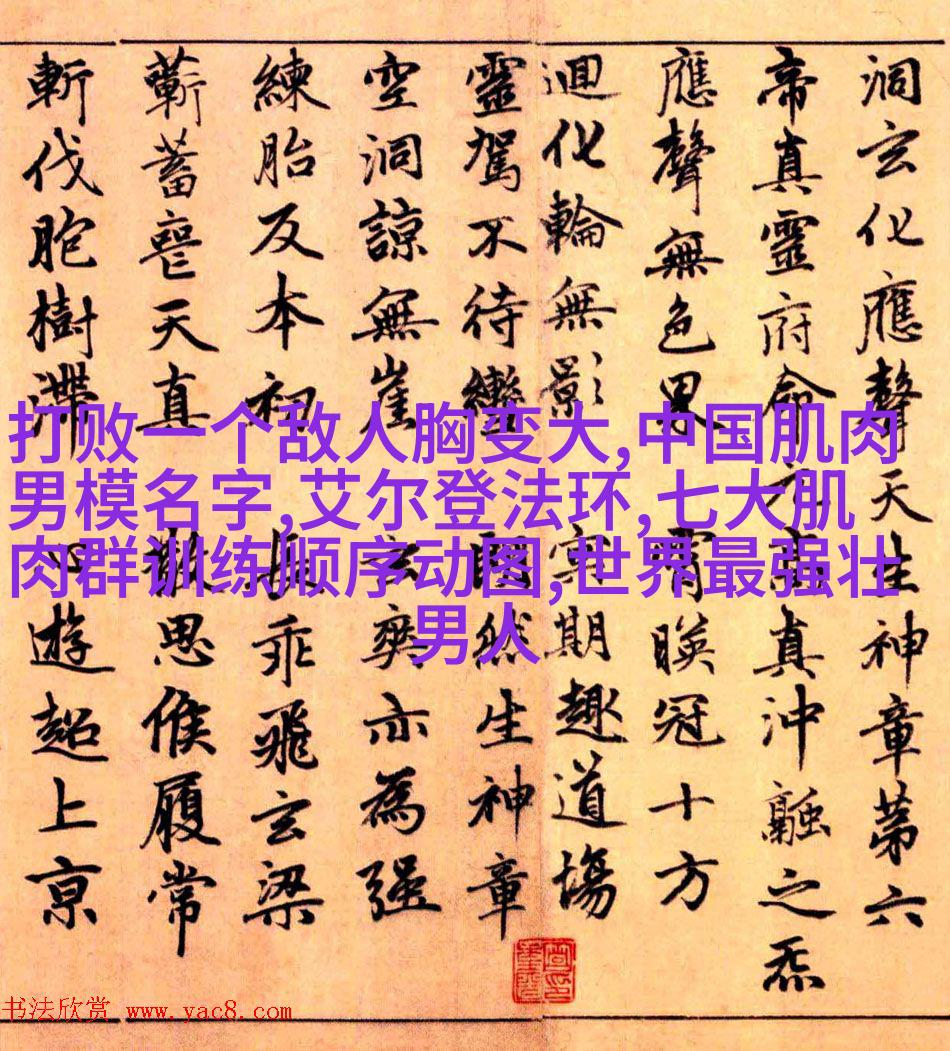 洞玄化應聲天生神章苐六
帝真靈府命元真沖融之炁
應聲無色界霄暎冠十方
迴化輪無影冥期趣道場
靈駕不待轡然生神章
空洞諒無崖玄爽亦為強
練胎反本初長乖飛玄梁
蘄蓄喪天真散思候履常
斬伐胞樹滯遊超上京
打败一个敌人胸变大,中国肌肉
男模名字,艾尔登法环,七大肌
肉群训练顺序动图,世界最强壮
男人
书法欣赏 www.yac8.com